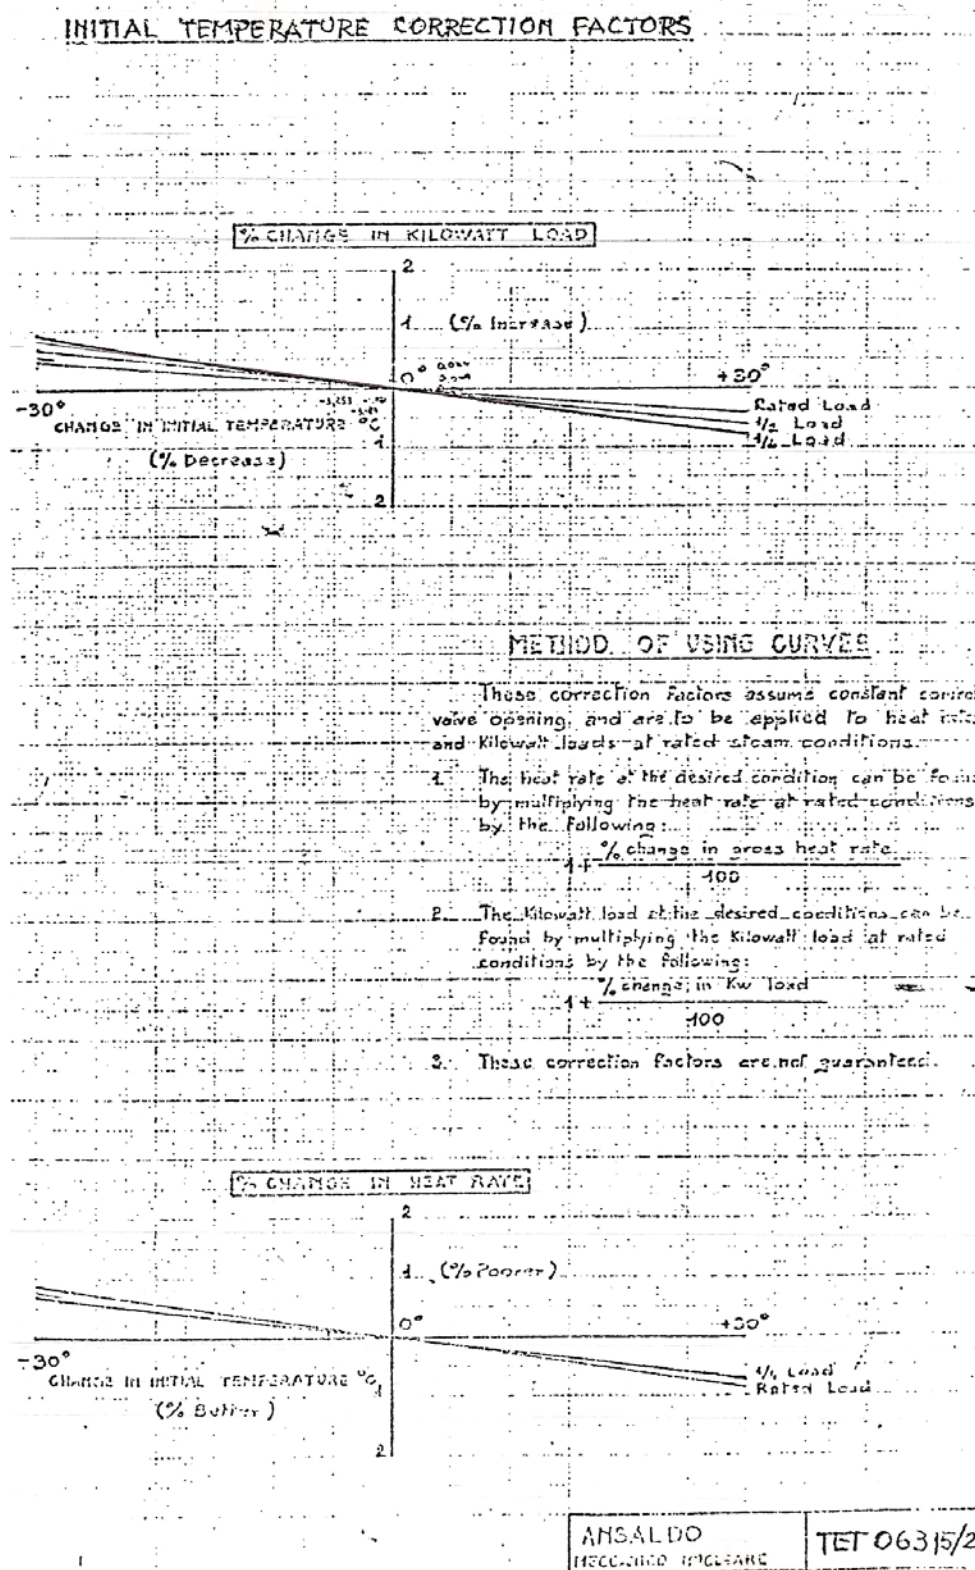 INITIAL TEMPERATURE CORRECTION FACTORS
% CHANGE IN KILOWATT LOAD
2
1 (% Increase)
0°
+30°
-30°
Rated Load
1/2 Load
1/4 Load
CHANGE IN INITIAL TEMPERATURE °C
1
(% Decrease)
2
METHOD OF USING CURVES
These correction factors assume constant control
valve opening, and are to be applied to heat rates
and Kilowatt loads at rated steam conditions.
1. The heat rate at the desired condition can be found
by multiplying the heat rate at rated conditions
by the following:
1 + % change in gross heat rate
100
2. The Kilowatt load at the desired conditions can be
found by multiplying the Kilowatt load at rated
conditions by the following:
1 + % change in Kw load
100
3. These correction factors are not guaranteed.
% CHANGE IN HEAT RATE
2
1 (% Poorer)
0°
+30°
-30°
CHANGE IN INITIAL TEMPERATURE °C
1/4 Load
Rated Load
(% Better)
2
ANSALDO
TET 06315/2